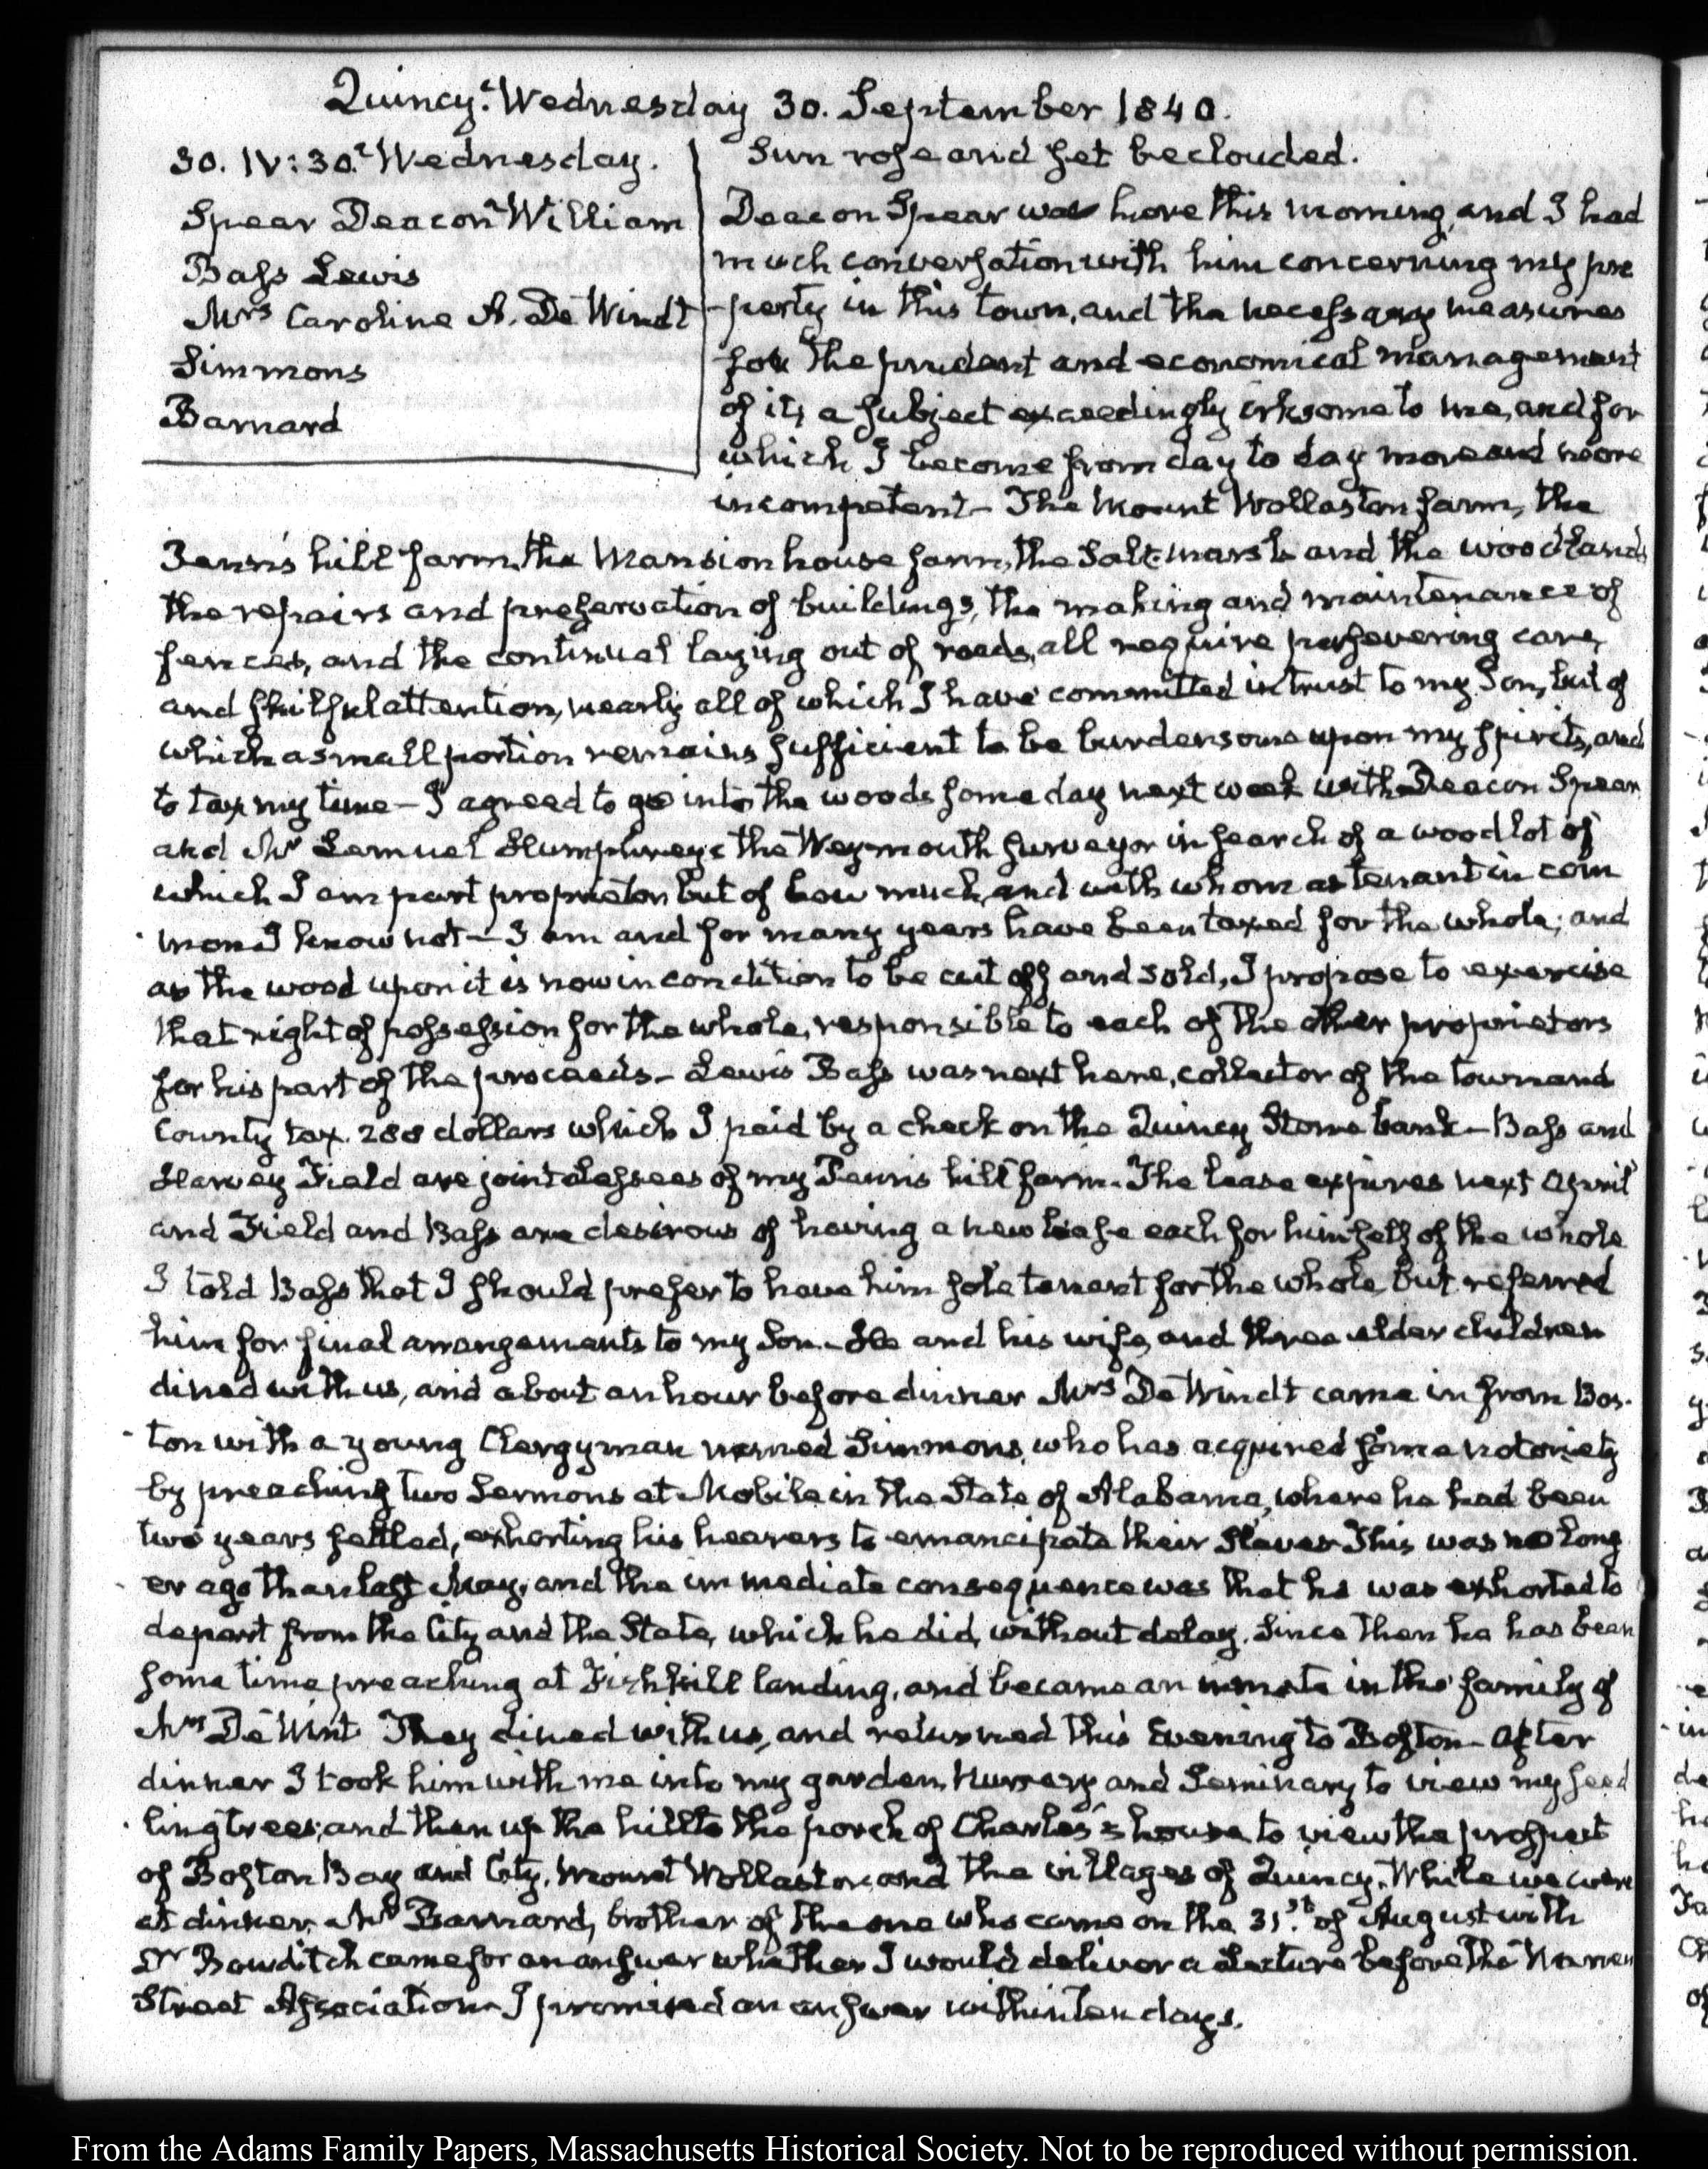 Quincy. Wednesday 30. September 1840.
30. IV: 30. Wednesday.
Spear Deacon William
Bass Lewis
Mrs Caroline A. De Windt
Simmons
Barnard
Sun rose and set beclouded.
Deacon Spear was here this morning, and I had
much conversation with him concerning my pro
-perty in this town, and the necessary measures
for the prudent and economical management
of it, a subject exceedingly irksome to me, and for
which I become from day to day more and more
incompetent— The Mount Wollaston farm, the
Penn's hill farm, the Mansion house farm, the Salt-marsh and the woodlands
the repairs and preservation of buildings, the making and maintenance of
fences, and the continual laying out of roads, all require persevering care,
and skilful attention, nearly all of which I have committed in trust to my Son, but of
which a small portion remains sufficient to be burdensome upon my spirits, and
to tax my time— I agreed to go into the woods some day next week with Deacon Spear
and Mr Lemuel Humphreys the Weymouth surveyor in search of a wood lot of
which I am part proprietor but of how much, and with whom as tenant in com
mon I know not— I am and for many years have been taxed for the whole; and
as the wood upon it is now in condition to be cut off and sold, I propose to exercise
that right of possession for the whole, responsible to each of the other proprietors
for his part of the proceeds— Lewis Bass was next here, collector of the town and
County tax. 288 dollars which I paid by a check on the Quincy Stone bank— Bass and
Harvey Field are joint Lessees of my Penns hill farm. The lease expires next April
and Field and Bass are desirous of having a new lease each for himself of the whole
I told Bass that I should prefer to have him sole tenant for the whole but referred
him for final arrangements to my Son— He and his wife, and three elder children
dined with us, and about an hour before dinner Mrs De Windt came in from Bos-
-ton with a young Clergyman named Simmons, who has acquired some notoriety
by preaching two Sermons at Mobile in the State of Alabama, where he had been
two years settled, exhorting his hearers to emancipate their Slaves This was no long
er ago than last May, and the immediate consequence was that he was exhorted to
depart from the City and the State, which he did, without delay. Since then he has been
some time preaching at Fishkill landing, and became an inmate in the family of
Mrs De Wint They dined with us, and returned this Evening to Boston— After
dinner I took him with me into my garden, Nursery and Seminary to view my seed
ling trees; and then up the hill to the porch of Charles's house to view the prospect
of Boston Bay and City, Mount Wollaston and the villages of Quincy. While we were
at dinner, Mr Barnard, brother of the one who came on the 31st of August with
Dr Bowditch came for an answer whether I would deliver a Lecture before the Warren
Street Association— I promised an answer within ten days.
From the Adams Family Papers, Massachusetts Historical Society. Not to be reproduced without permission.